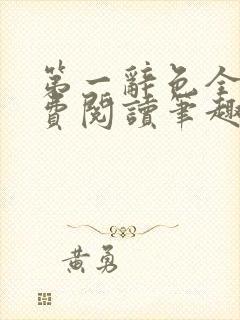 第一辭色全
費閱讀筆趣
黃勇